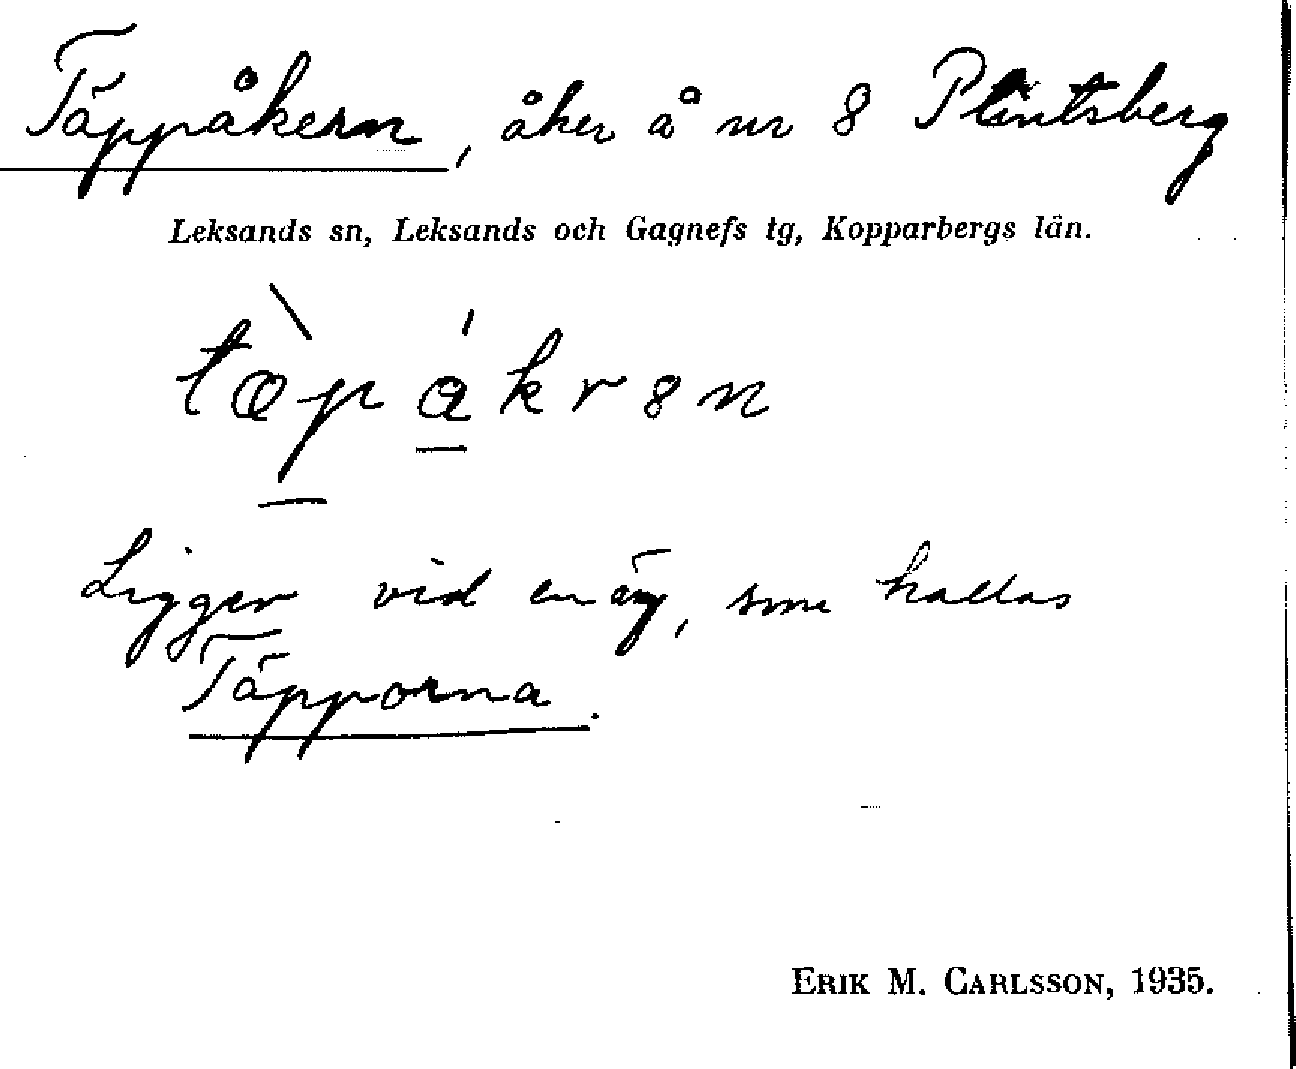 Täppåkern, åker å nr 8 Plintsberg
Leksands sn, Leksands och Gagnefs tg, Kopparbergs län.
tæ̀pá̲krən
Ligger vid en äng, som kallas
Täpporna.
ERIK M. CARLSSON, 1935.